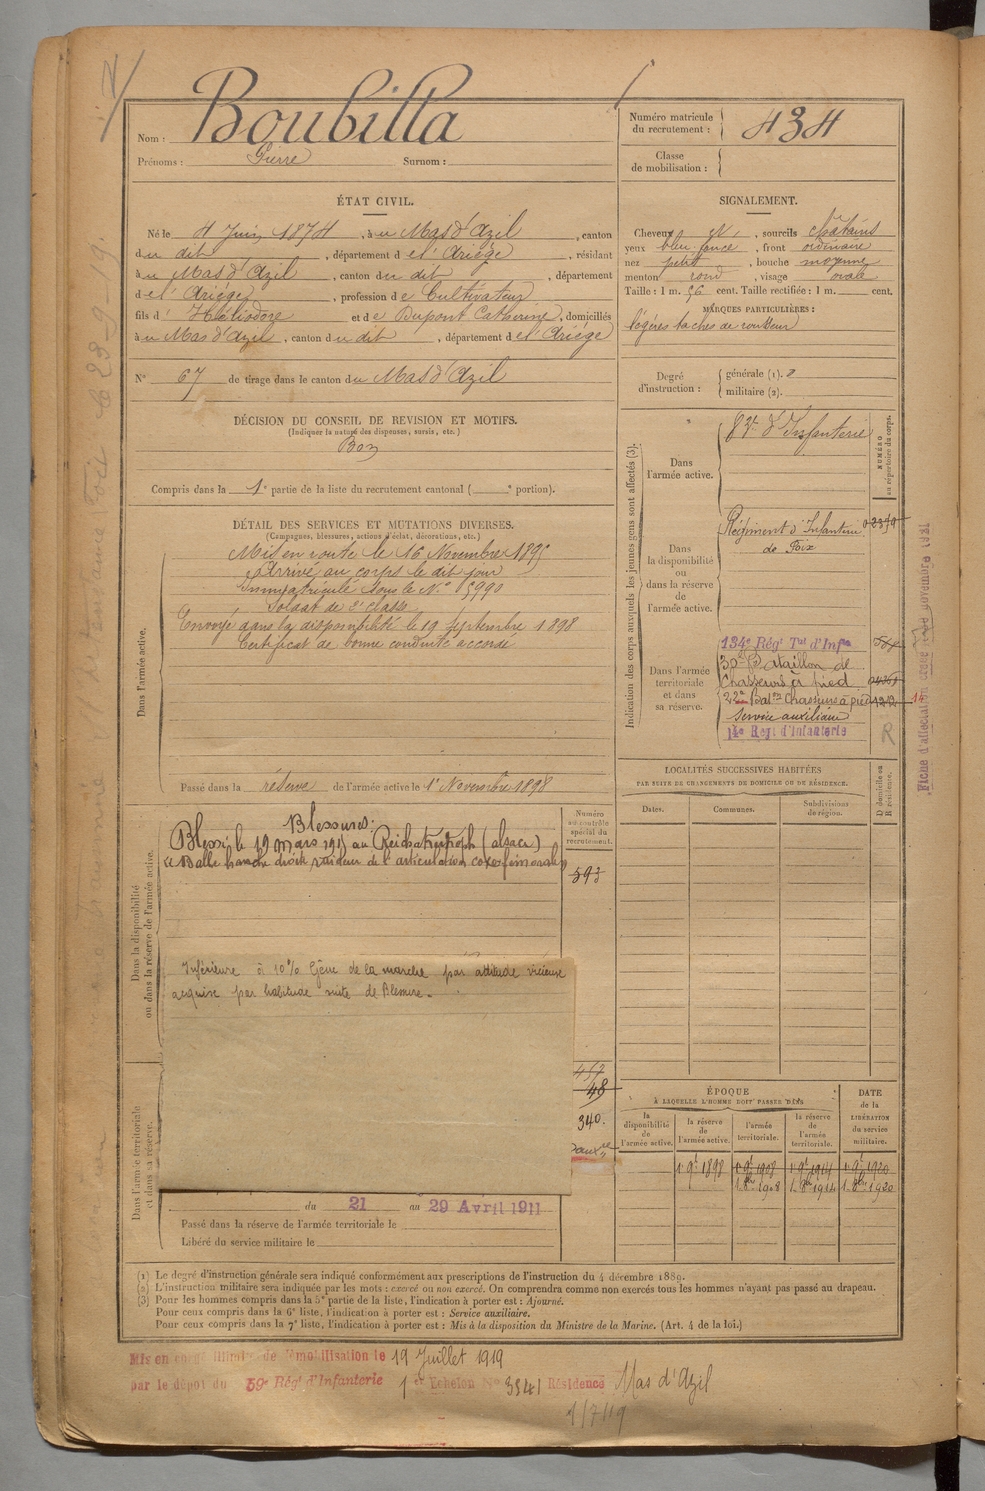 Nom : Boubilla
Prénoms : Pierre Surnom :
Numéro matricule
du recrutement : 434
Classe
de mobilisation :
ÉTAT CIVIL.
Né le 4 Juin 1874, à u Mas d'Azil, canton
d u dit, département d e l'Ariège, résidant
à u Mas d'Azil, canton d u dit, département
d e l'Ariège, profession d e Cultivateur
fils d' Héliodore et d e Dupont Catherine, domiciliés
à u Mas d'Azil, canton d u dit, département d e l'Ariège
N° 67 de tirage dans le canton d u Mas d'Azil
SIGNALEMENT.
Cheveux et, sourcils châtains
yeux bleu foncé, front ordinaire
nez petit, bouche moyenne
menton rond, visage ovale
Taille : 1 m. 56 cent. Taille rectifiée : 1 m. cent.
MARQUES PARTICULIÈRES :
légères taches de rousseur
Degré
d'instruction :
générale (1). 2
militaire (2).
DÉCISION DU CONSEIL DE REVISION ET MOTIFS.
(Indiquer la nature des dispenses, sursis, etc.)
Bon
Compris dans la 1e partie de la liste du recrutement cantonal ( e portion).
DÉTAIL DES SERVICES ET MUTATIONS DIVERSES.
(Campagnes, blessures, actions d'éclat, décorations, etc.)
Dans l'armée active.
Mis en route le 16 Novembre 1895
Arrivé au corps le dit jour
Immatriculé sous le N° 5990
Soldat de 2e classe
Envoyé dans la disponibilité le 19 Septembre 1898
Certificat de bonne conduite accordé
Passé dans la réserve de l'armée active le 1er Novembre 1898
Indication des corps auxquels les jeunes gens sont affectés (3).
NUMÉRO
au répertoire du corps.
Dans
l'armée active.
d'Infanterie
Dans
la disponibilité
ou
dans la réserve
de
l'armée active.
Régiment d'Infanterie
de Foix
Dans l'armée
territoriale
et dans
sa réserve.
134e Régt Tal d'Infie
30e Bataillon de
Chasseurs à pied
22e Baton Chasseurs à pied
Service auxiliaire
14e Régt d'Infanterie
R
LOCALITÉS SUCCESSIVES HABITÉES
PAR SUITE DE CHANGEMENTS DE DOMICILE OU DE RÉSIDENCE.
Dates.
Communes.
Subdivisions
de région.
D domicile ou
R résidence.
Dans la disponibilité
ou dans la réserve de l'armée active.
Numéro
au contrôle
spécial du
recrutement.
593
Blessures :
Blessé le 19 mars 1915 au Reichackerkopf (alsace)
Balle hanche droite raideur de l'articulation coxofémorale
Inférieure à 10% Gêne de la marche par attitude vicieuse
acquise par habitude suite de Blessure.
48
340.
Dans l'armée territoriale
et dans sa réserve.
du 21 au 29 Avril 1911
Passé dans la réserve de l'armée territoriale le
Libéré du service militaire le
ÉPOQUE
À LAQUELLE L'HOMME DOIT PASSER DANS
la
disponibilité
de
l'armée active.
la réserve
de
l'armée active.
l'armée
territoriale.
la réserve
de
l'armée
territoriale.
DATE
de la
LIBÉRATION
du service
militaire.
1 9e 1898 1 9e 1908 1 9e 1914 1 9e 1920
1 8bre 1908 1 8bre 1914 1 8bre 1920
(1) Le degré d'instruction générale sera indiqué conformément aux prescriptions de l'instruction du 4 décembre 1889.
(2) L'instruction militaire sera indiquée par les mots : exercé ou non exercé. On comprendra comme non exercés tous les hommes n'ayant pas passé au drapeau.
(3) Pour les hommes compris dans la 5e partie de la liste, l'indication à porter est : Ajourné.
Pour ceux compris dans la 6e liste, l'indication à porter est : Service auxiliaire.
Pour ceux compris dans la 7e liste, l'indication à porter est : Mis à la disposition du Ministre de la Marine. (Art. 4 de la loi.)
Mis en congé illimité de démobilisation le 19 Juillet 1919
par le dépôt du 59e Régt d'Infanterie 1er Echelon N° 3841 Résidence Mas d'Azil
1/7/19
Fiche d'affectation novembre 1921